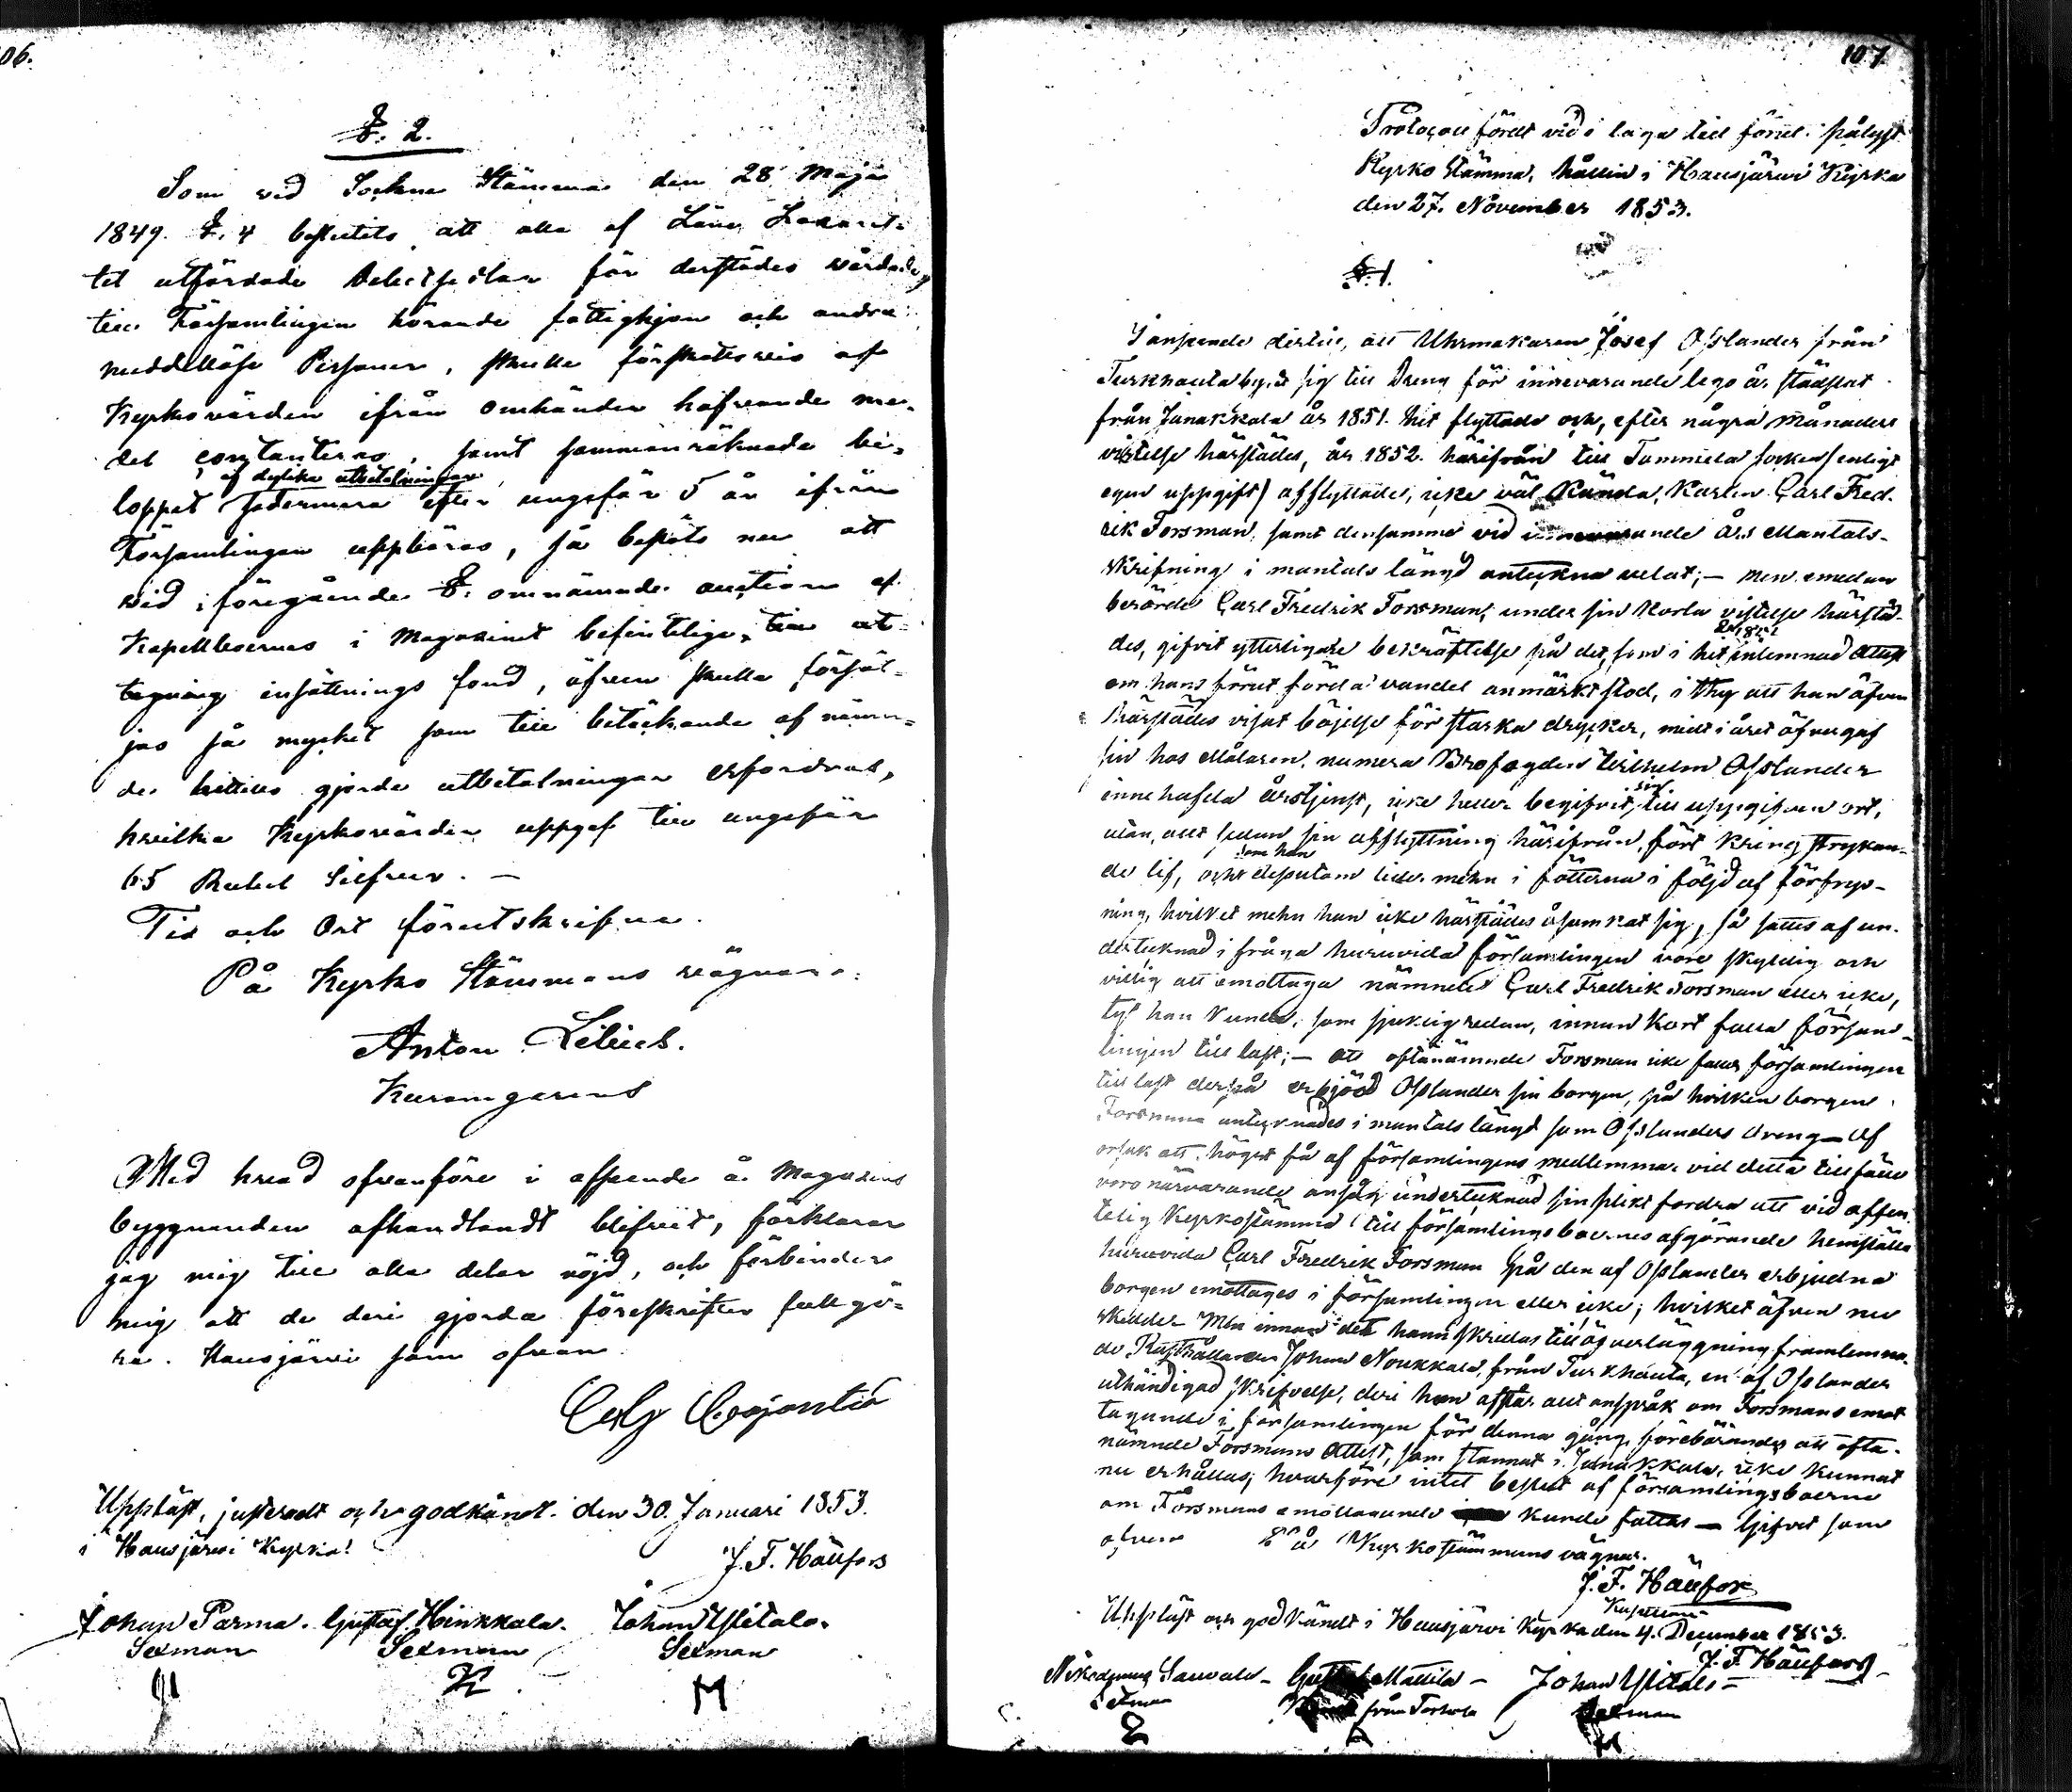 06.
§. 2.
Som vid Sockne Stämma den 28 Maji
1849. §. 4 beslutits att alla af Läns Lazaret-
tet utfärdade Debetsedlar för derstädes vårdade,
till Församlingen hörande fattighjon och andra
meddellöse Personer, skulle förskottsvis af
Kyrkovärden ifrån omhänder hafvande me-
del contanteras, samt sammanräknade be-
af dylika utbetalningar
loppet sedermera efter ungefär 5 år ifrån
Församlingen uppbäras, så beslöts nu att
vid i föregående §. omnämnde auction af
Kapellboernas i Magasinet befintelige, till ut-
tagning insättnings fond, äfven skulle försäl-
jas så mycket som till betäckande af nämn-
de hittills gjorde utbetalningar erfordras,
hvilka Kyrkovärden uppgaf till ungefär
65 Rubel Silfver. —
Tid och Ort förutskrifne.
På Kyrko Stämmans vägnar:
Anton Lilius.
Med hvad ofvanföre i afseende å Magasins
byggnanden afhandlandt blifvit, förklarar
jag mig till alla delar nöjd, och förbinder
mig att de deri gjorda föreskrifter fullgö-
ra. Hausjärvi som ofvan
Uppläst, justeradt och godkändt. den 30. Januari 1853.
i Hausjärvi Kyrka!
J. F. Hällfors
Johan Parma. Gustaf Hinkkala. Johan Ylitalo.
Sexman Sexman Sexman
K M
107
Protocoll fördt vid i laga tid förut pålyst
Kyrko Stämma, hållen i Hausjärvi Kyrka
den 27. November 1853.
§. 1.
I anseende dertill, att Uhrmakaren Josef Osslander från
Turkhauta by, å sig till Dreng för innevarande lego år städslat
från Janakkala år 1851. hit flyttade och, efter några månaders
vistelse härstädes, år 1852. härifrån till Tammela socken (enligt
egen uppgift) afflyttade, icke väl kända, Karlen Carl Fred-
rik Forsman, samt densamme vid innevarande års Mantals-
skrifning i mantals längd anteckna velat; — men emedan
berörde Carl Fredrik Forsman, under sin korta vistelse härstä-
des, gifvit ytterligare bekräftelse på det, som i hit inlemnad Attest
om hans förut förda vandel anmärkt stod, i thy att han äfven
härstädes visat böjelse för starka drycker, midt i året öfvergaf
sin hos Målaren, numera Brofogden Wilhelm Osslander
innehafda årstjenst, icke heller begifvit sig till uppgifven ort,
utan, allt sedan sin afflyttning härifrån, fört kring strykan-
som han
de lif, och dessutom lider mehn i fötterna i följd af förfrys-
ning, hvilket mehn han icke härstädes åsamkat sig, så sattes af un-
dertecknad i fråga huruvida församlingen vore skyldig och
villig att emottaga nämnde Carl Fredrik Forsman eller icke,
ty han kunde, som sjuklig redan, innan kort falla församl-
lingen till last; — att oftanämnde Forsman icke faller församlingen
till last derpå erbjöd Osslander sin borgen, på hvilken borgen
Forsman antecknades i mantals längd som Osslanders dreng — Af
orsak att högst få af församlingens medlemmar vid detta tillfälle
voro närvarande ansåg undertecknad sin plikt fordra att vid offen-
telig Kyrkostämma till församlingsboernes afgörande hemställa
huruvida Carl Fredrik Forsman på den af Osslander erbjudna
borgen emottages i församlingen eller icke; hvilket äfven nu
skedde. Men innan det hann skridas till öfverläggning framlemna-
de Rusthållaren Johan Noukkala, från Turkhauta, en af Osslander
uthändigad skrifvelse, deri han afstår allt anspråk om Forsmans emot
tagande i församlingen för denna gång, förebärandes att ofta-
nämnde Forsmans Attest, som stannat i Janakkala, icke kunnat
nu erhållas; hvarföre intet beslut af församlingsboerne
om Forsmans emottagande kunde fattas — Gifvet som
ofvan På Kyrkostämmans vägnar.
J. F. Hällfors
Uppläst och godkändt i Hausjärvi Kyrka den 4. December 1853.
J. F. Hällfors
Nikodemus Sauvala — Gustaf Mattila — Johan Ylitalo —
Sexman från Torhola Sexman